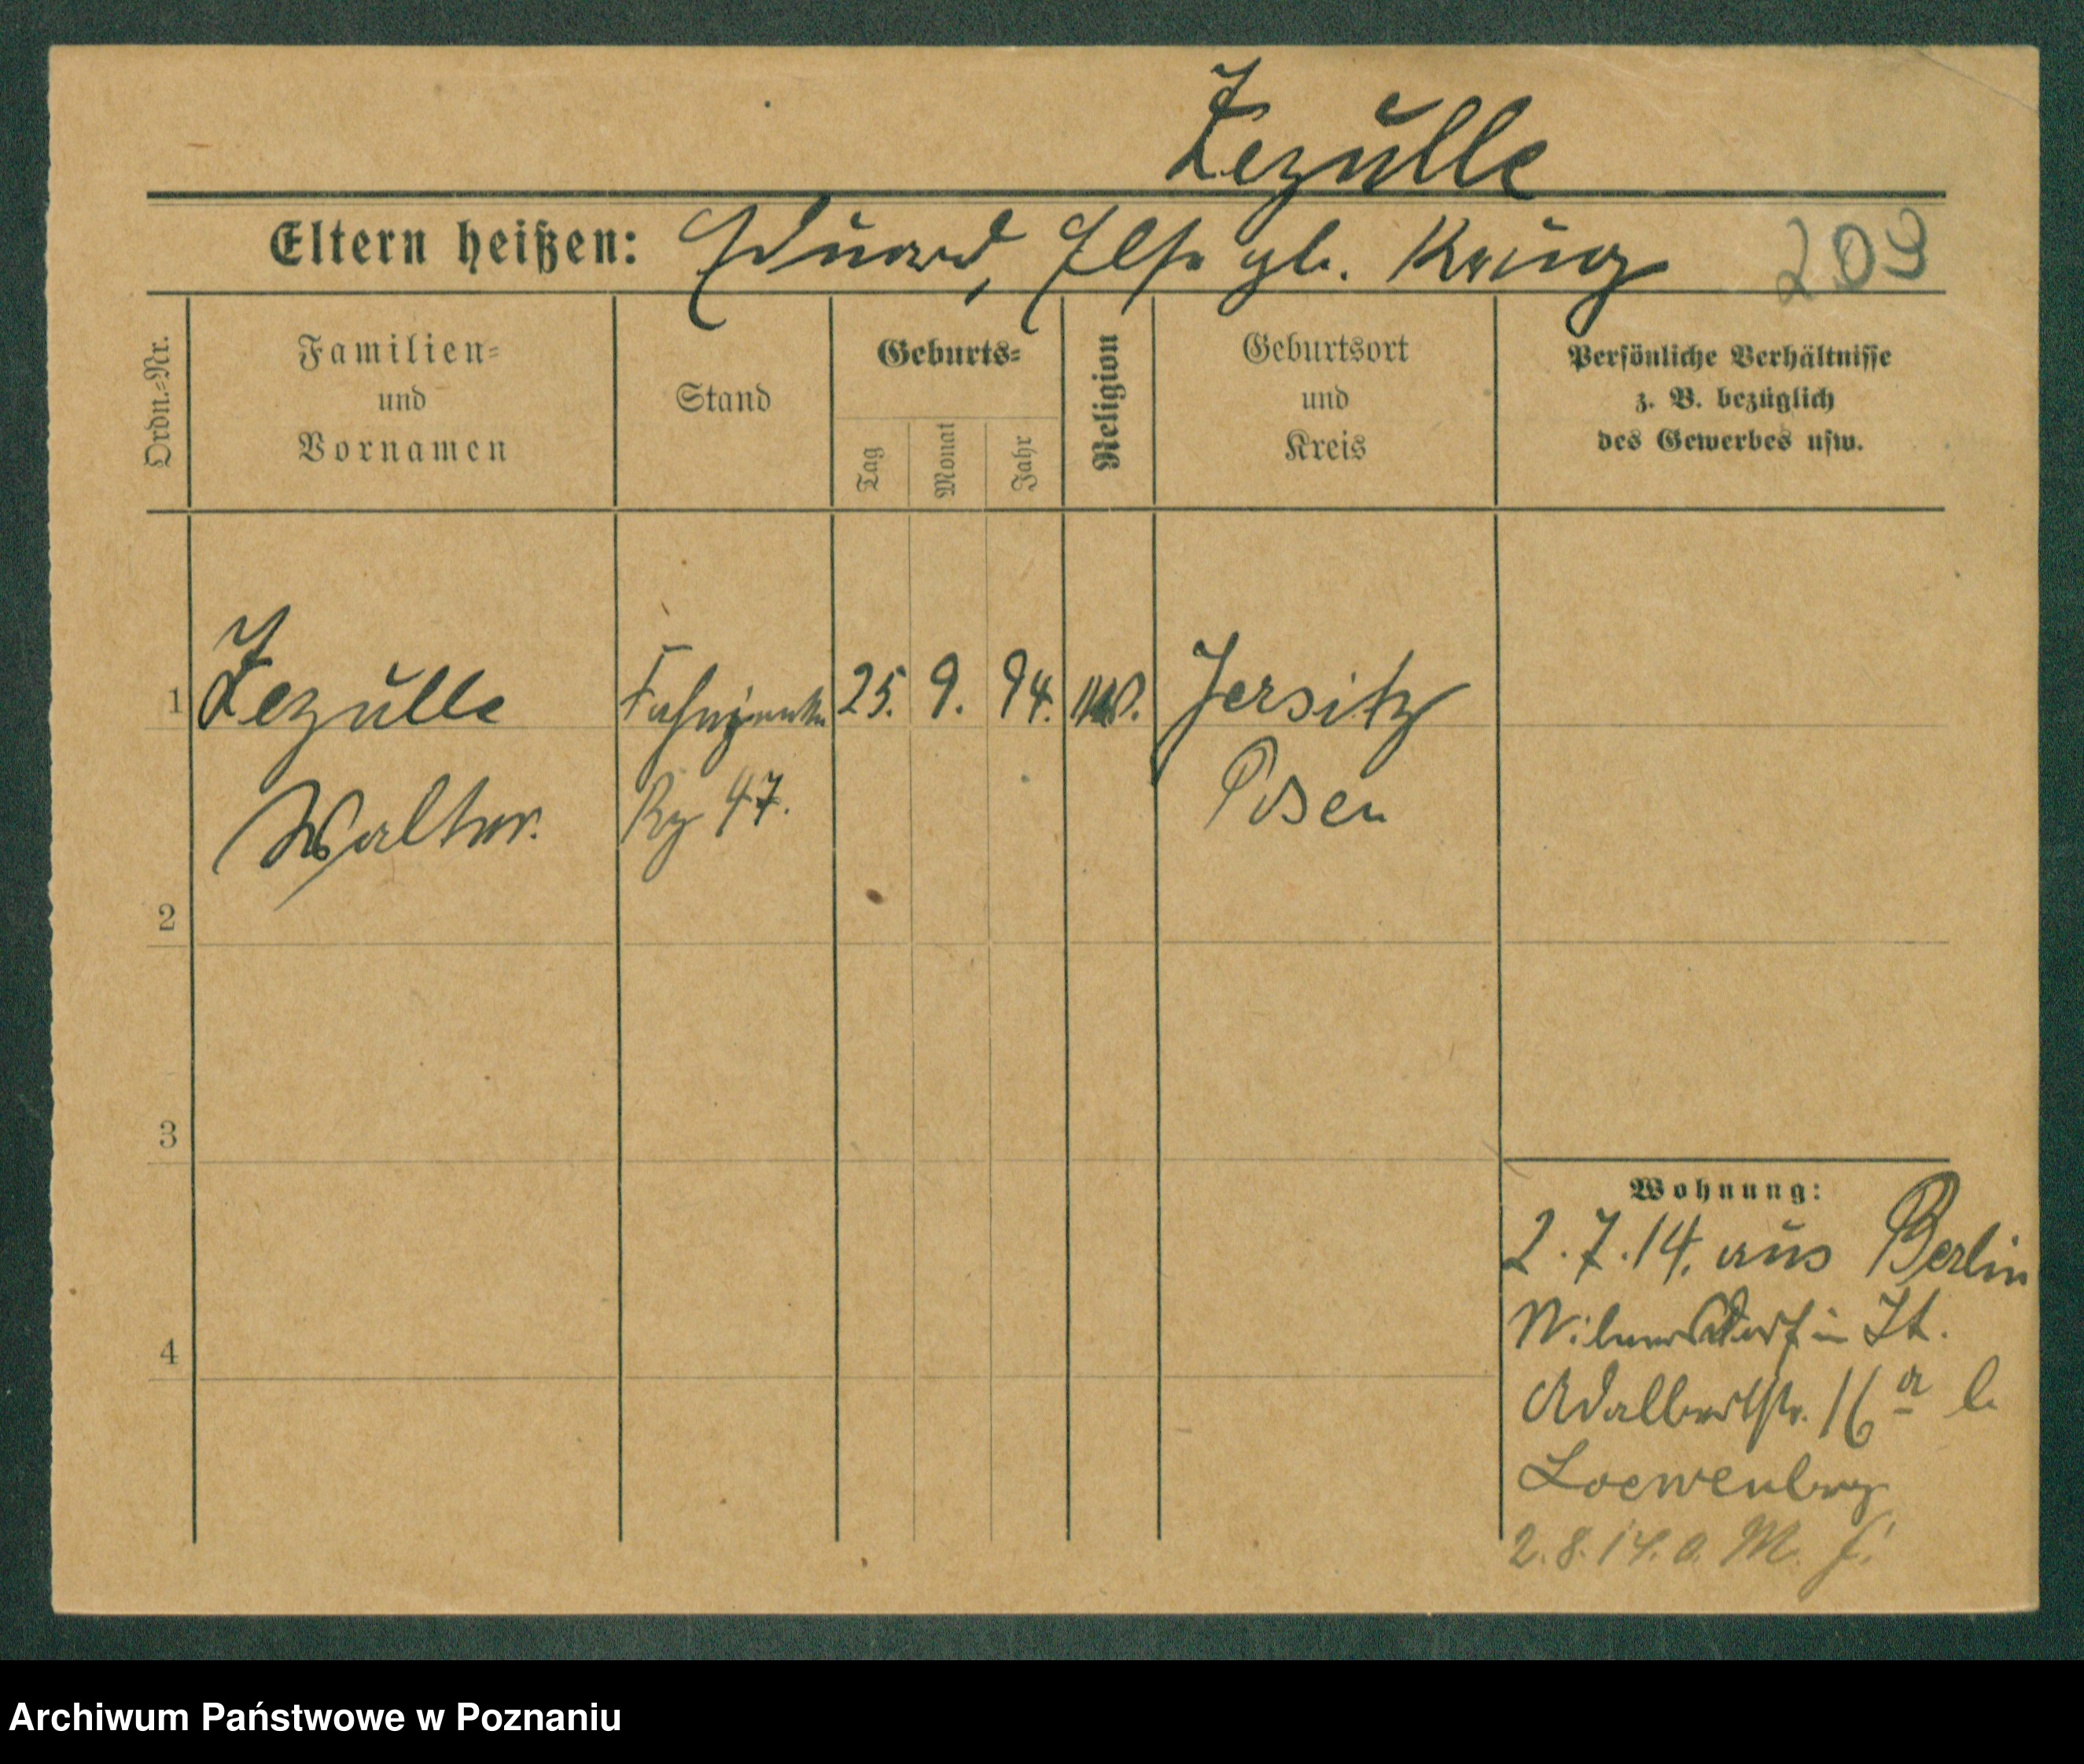 Zezulle
Eltern heißen: Eduard, Else gb. Krug 209
Ordn.=Nr.
Familien=
und
Vornamen
Stand
Geburts=
Tag
Monat
Jahr
Religion
Geburtsort
und
Kreis
Persönliche Verhältnisse
z. B. bezüglich
des Gewerbes usw.
1 Zezulle Fahnjunker 25. 9. 94. Jersitz
Walther. Rg 47. Posen
2
3
4
Wohnung:
2.7.14. aus Berlin
Wilmersdorf in St.
Adalbertstr. 16a b.
Loewenberg
2.8.14. a. M.
Archiwum Państwowe w Poznaniu